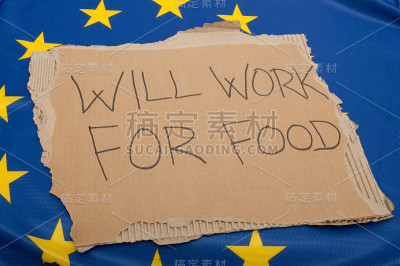 WILL WORK
FOR FOOD
搞定素材
SUCAI.GAODING.COM
搞定素材
搞定素材
搞定素材
搞定素材
搞定素材
搞定素材